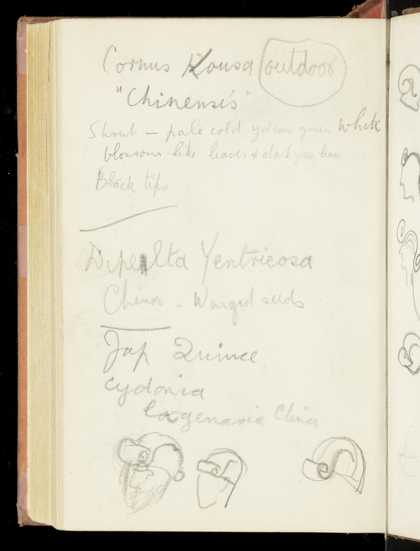 Cornus Kousa outdoor
"Chinensis"
Shrub — pale cold yellow green white
blossoms like leaves & dark
Black tips
Dipelta Yentricosa
China - Winged seeds
Jap Quince
Cydonia
Lagenaria China